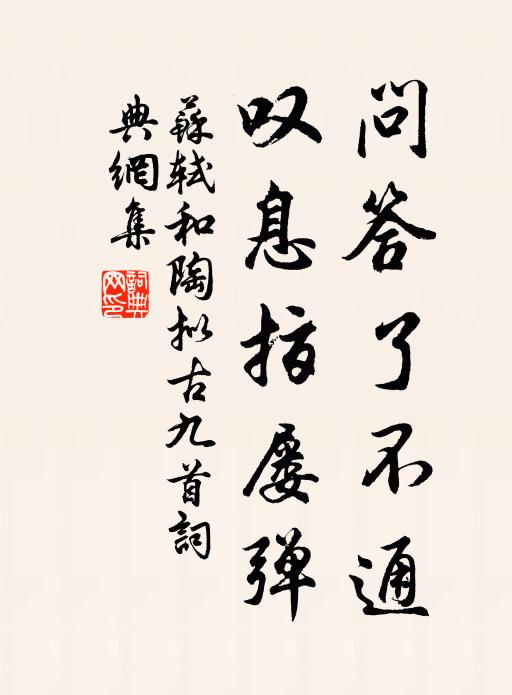 问答了不通
叹息指屡弹
蘇軾和陶拟古九首詞
典網集
詞典
网印